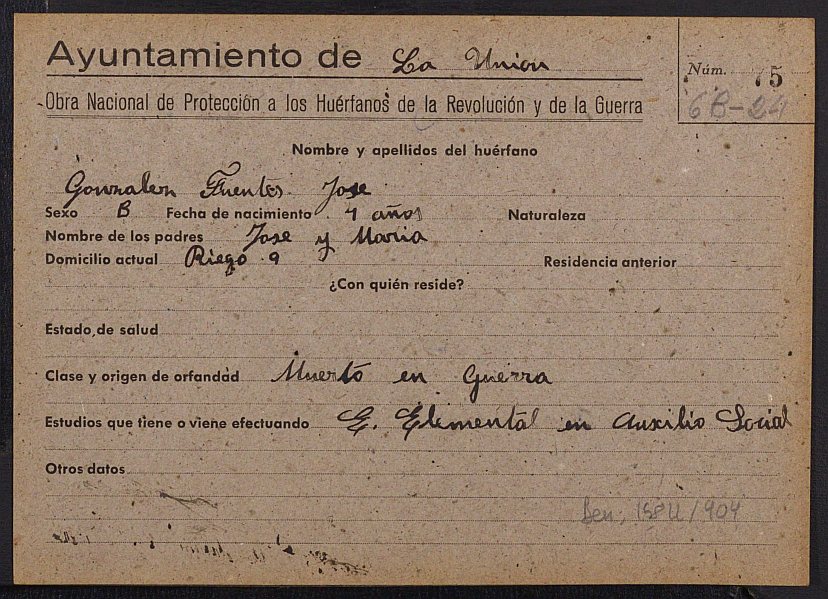 Ayuntamiento de La Union
Núm. 75
6B-24
Obra Nacional de Protección a los Huérfanos de la Revolución y de la Guerra
Nombre y apellidos del huérfano
Gonzalez Fuentes Jose
Sexo B Fecha de nacimiento 7 años Naturaleza
Nombre de los padres Jose y Maria
Domicilio actual Riego 9 Residencia anterior
¿Con quién reside?
Estado de salud
Clase y origen de orfandad Muerto en Guerra
Estudios que tiene o viene efectuando E. Elemental en Auxilio Social
Otros datos
Ben, /904